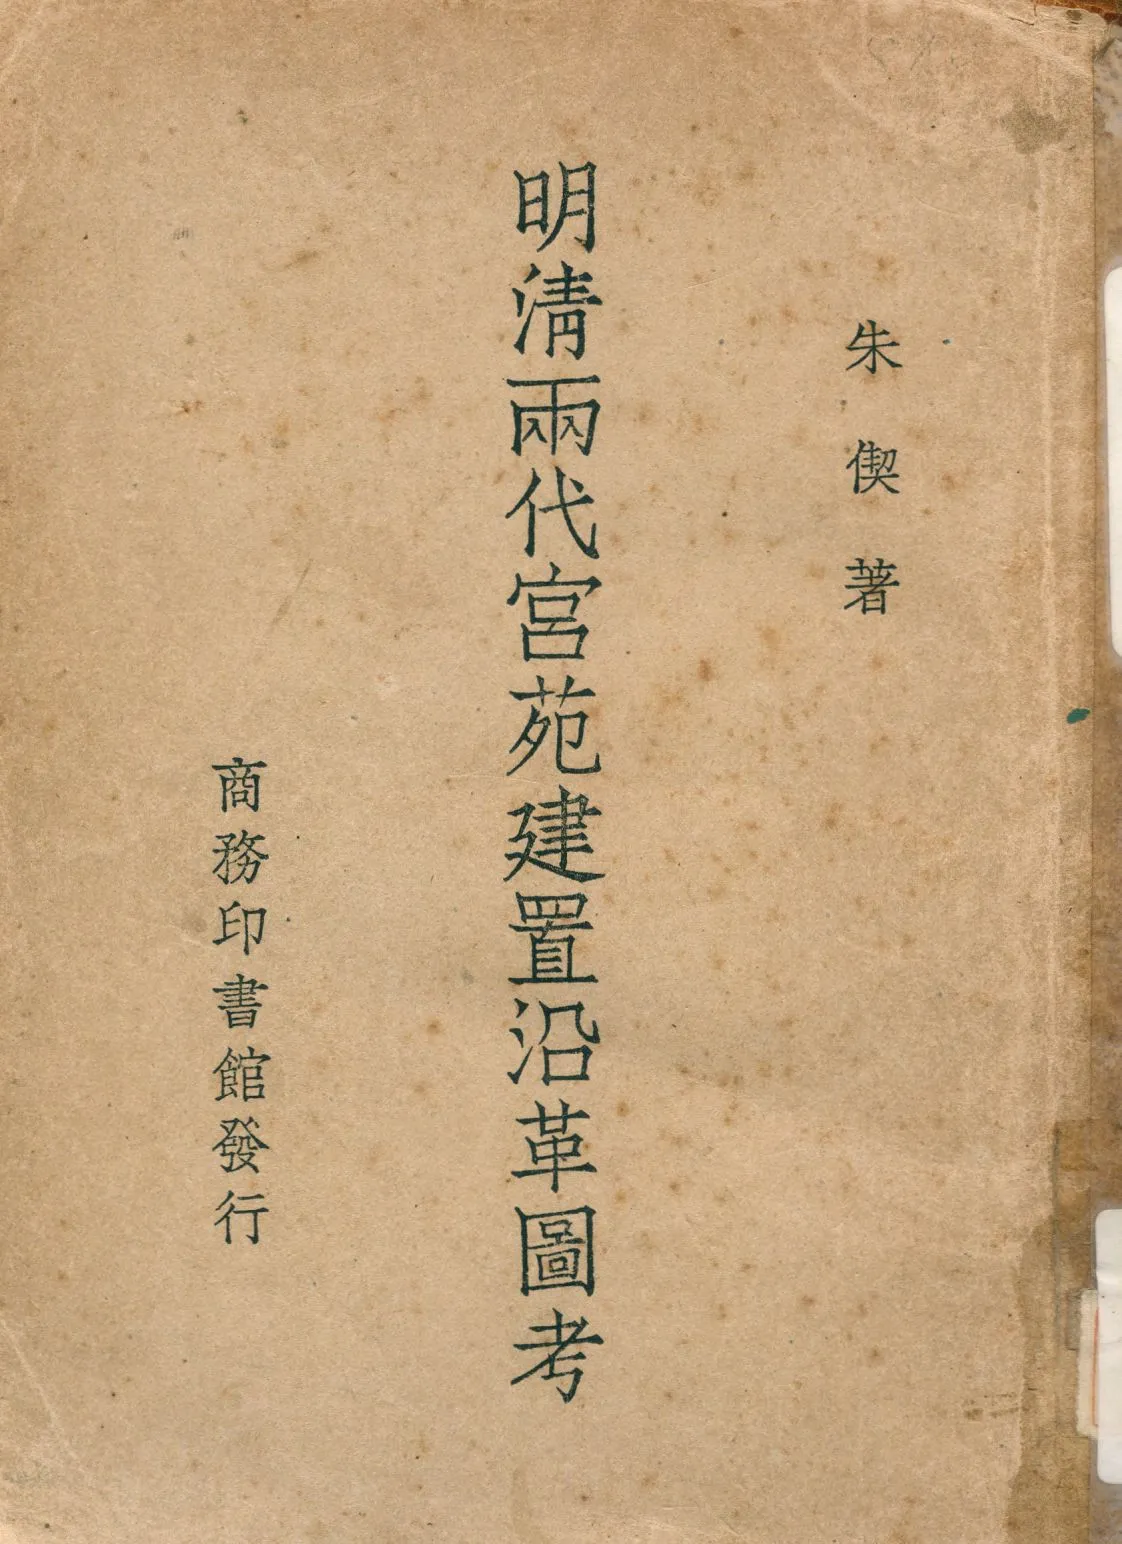 朱偰著
明淸兩代宮苑建置沿革圖考
商務印書館發行